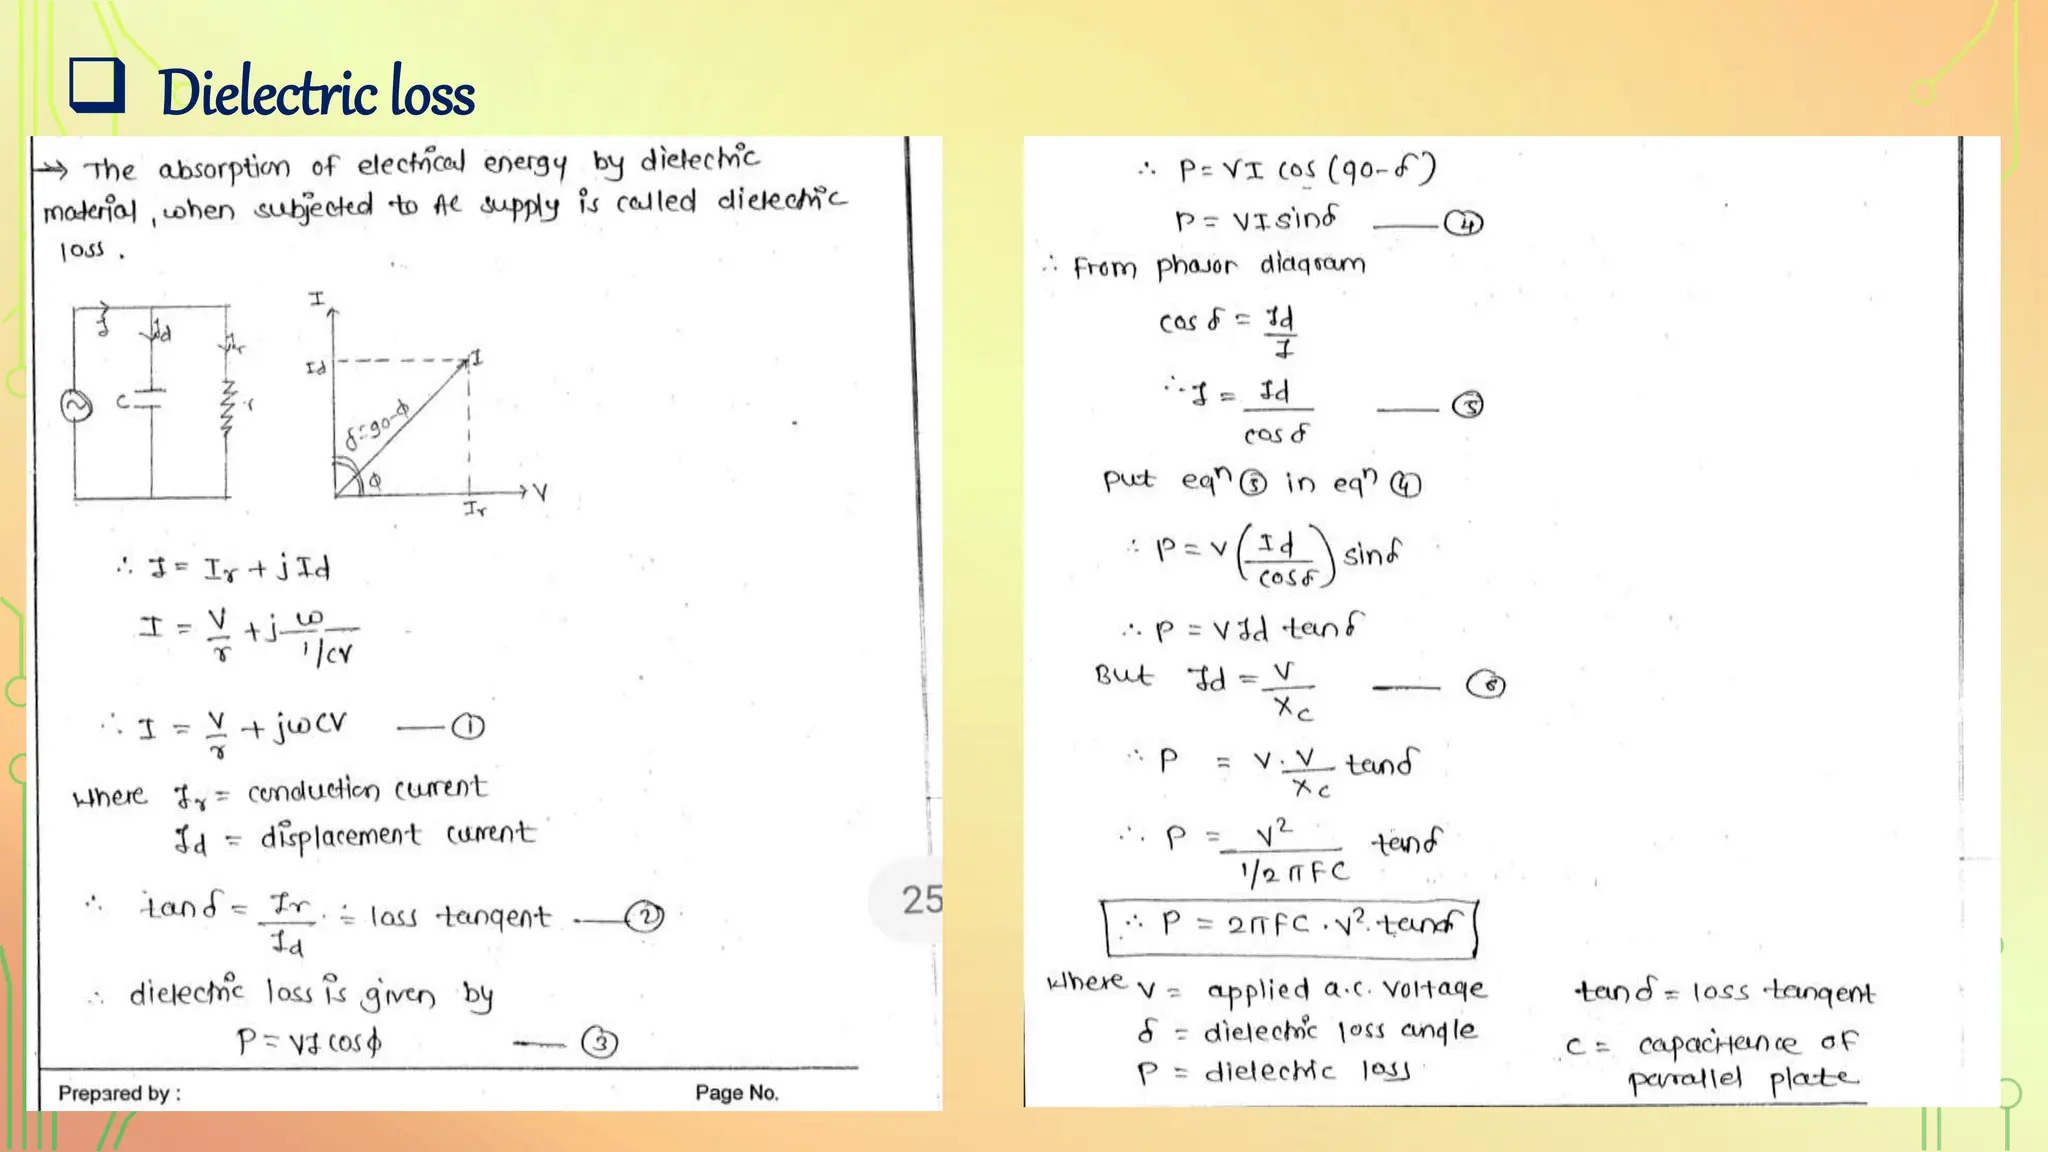 Dielectric loss
→ The absorption of electrical energy by dielectric
material, when subjected to AC supply is called dielectric
loss.
I
I
Id
Ir
C
r
I
Id
I
δ=90-φ
φ
V
Ir
∴ I = Ir + jId
I = V/r + j ω/(1/CV)
∴ I = V/r + jωCV —①
Where Ir = conduction current
Id = displacement current
∴ tanδ = Ir/Id = loss tangent —②
∴ dielectric loss is given by
P = VI cosφ —③
Prepared by :
Page No.
25
∴ P = VI cos (90-δ)
P = VI sinδ —④
∴ From phasor diagram
cos δ = Id/I
∴ I = Id/cos δ —⑤
Put eqⁿ ⑤ in eqⁿ ④
∴ P = V (Id/cosδ) sinδ
∴ P = VId tanδ
But Id = V/Xc —⑥
∴ P = V. V/Xc tanδ
∴ P = V²/(1/2πFC) tanδ
∴ P = 2πFC . V². tanδ
Where V = applied a.c. voltage
δ = dielectric loss angle
P = dielectric loss
tanδ = loss tangent
C = capacitance of
parallel plate